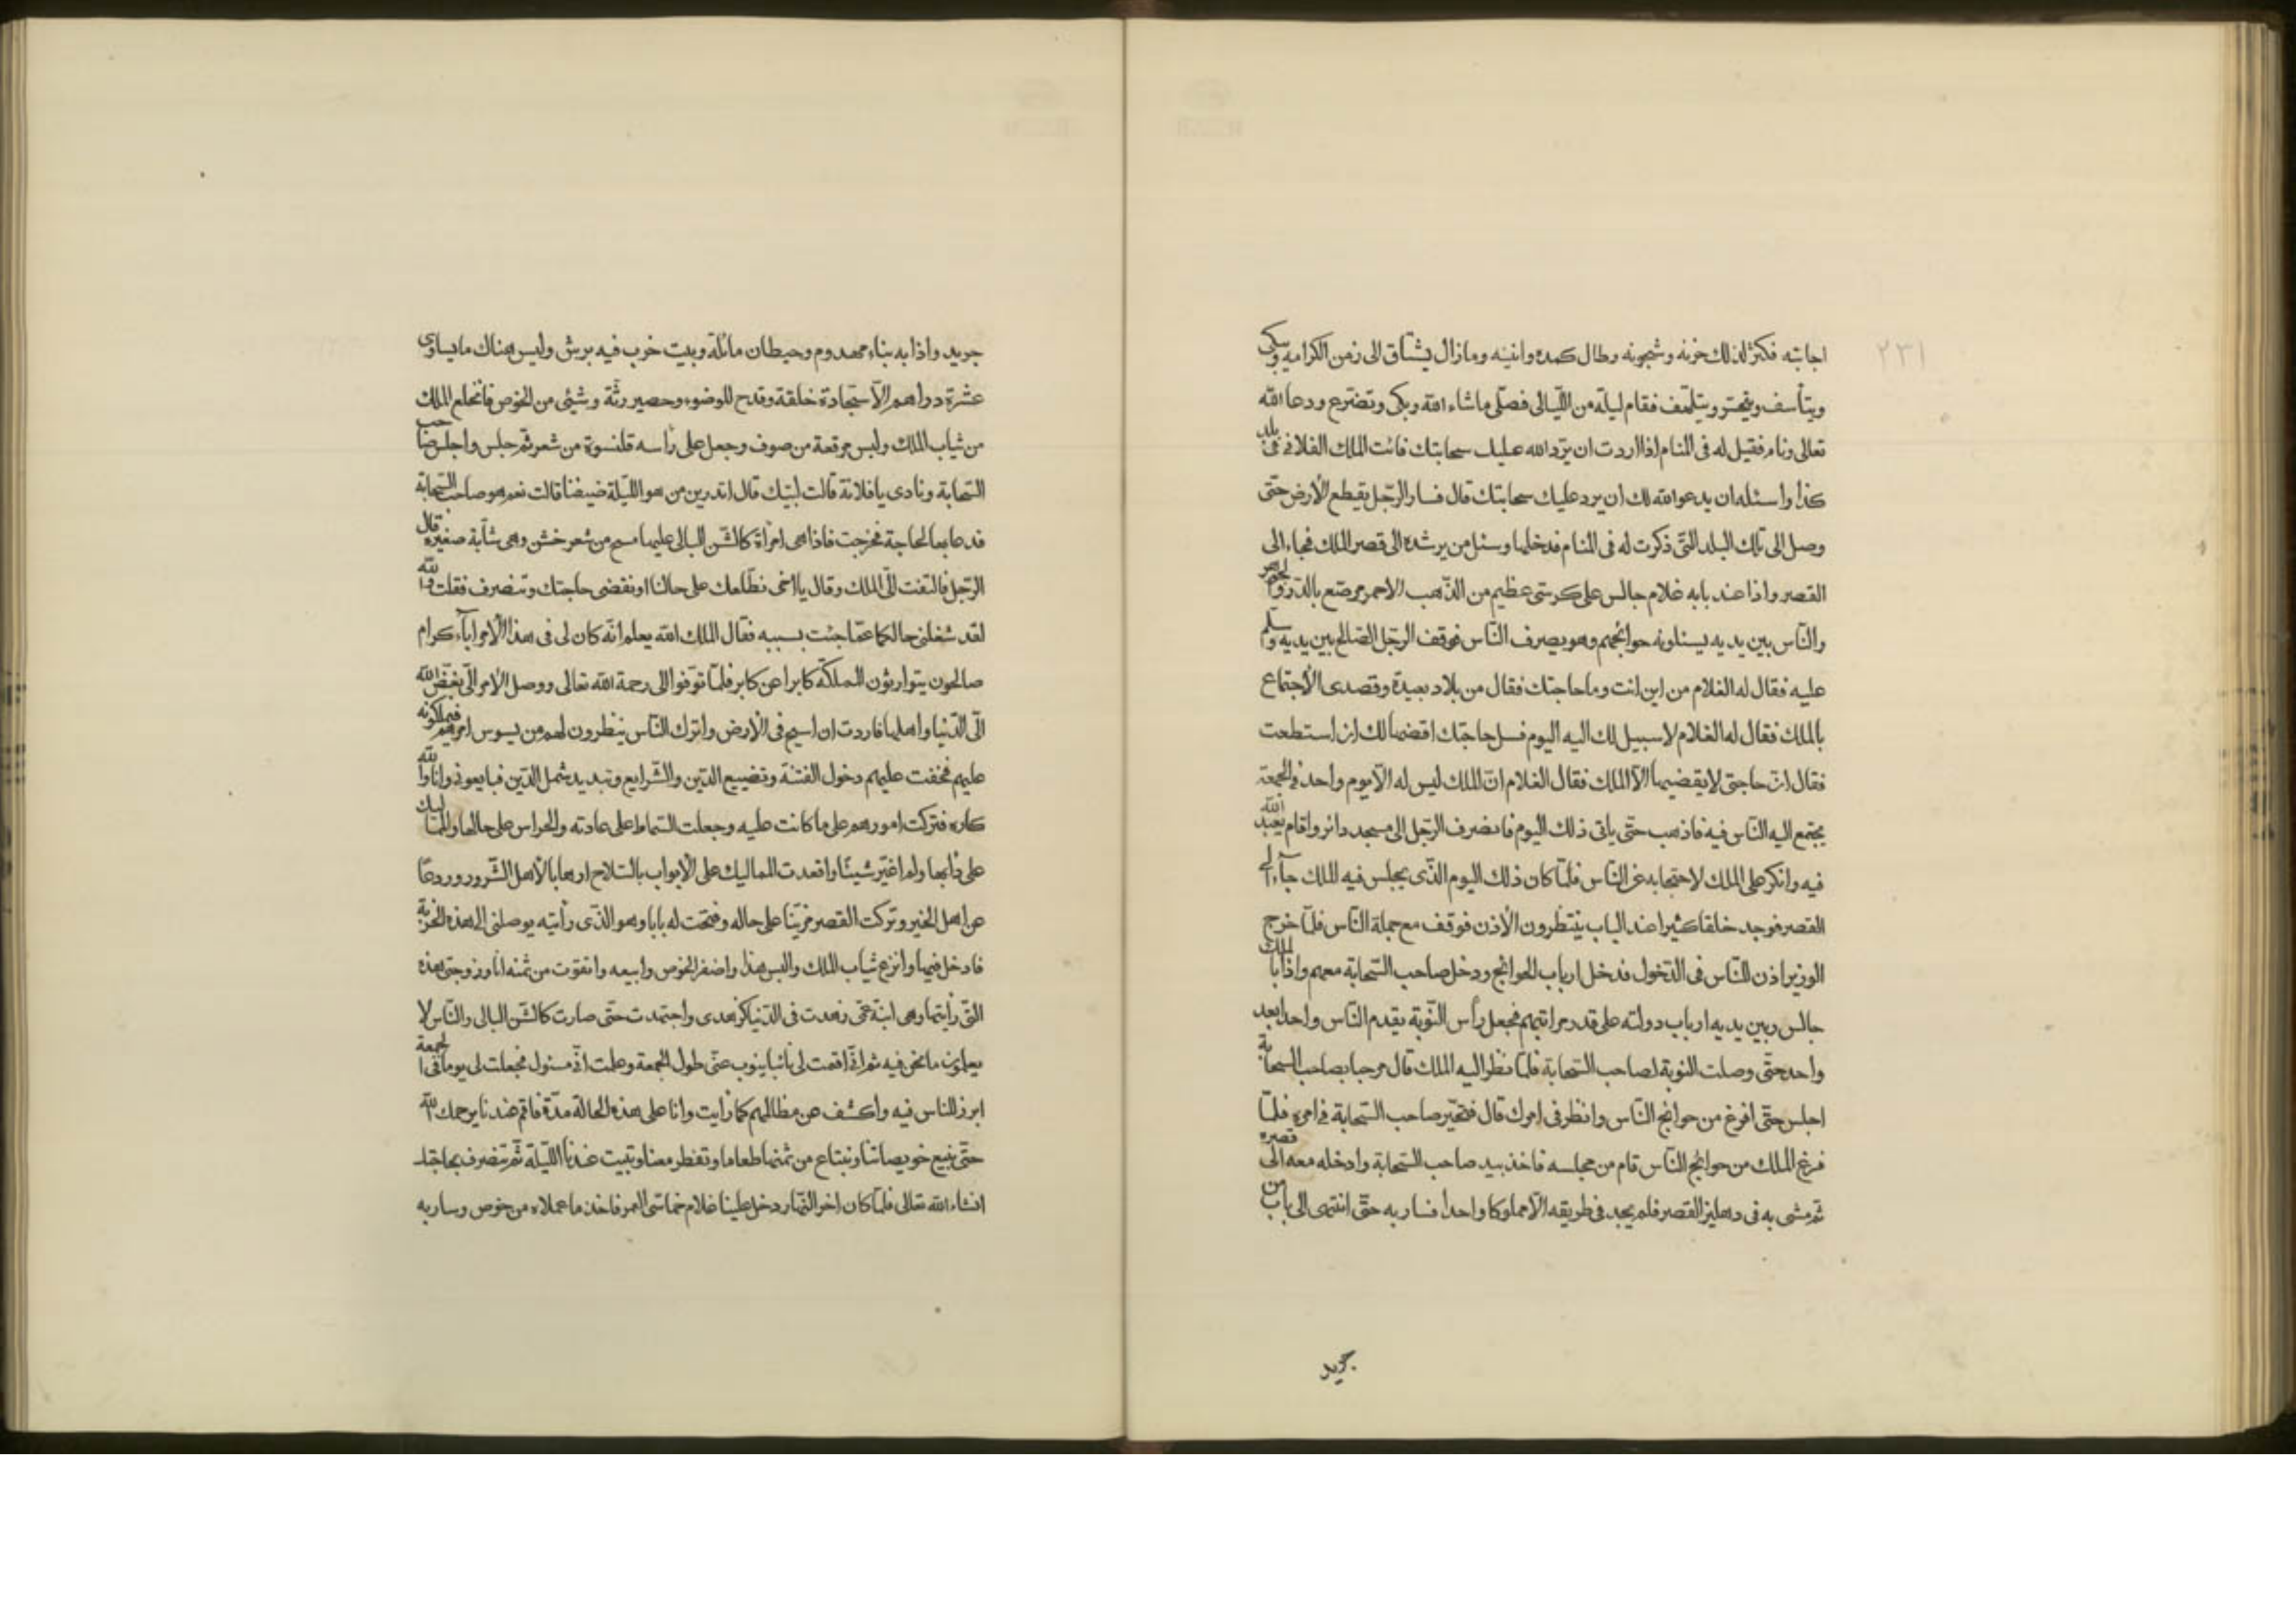 ٢٣١
اجابته فكثر لذلك حزنه وشجونه وطال كمده وانينه ومازال يشتاق الى زمن الكرامة ويبكى
ويتأسف ويتحسّر ويتلهّف فقام ليلة من اللّيالى فصلّى ماشاء الله وبكى وتضرّع ودعا الله
تعالى ونام فقيل له فى المنام اذا اردت ان يردّ الله عليك سحابتك فائت الملك الفلانى فى بلد
كذا واسئله ان يدعو الله لك ان يرد عليك سحابتك قال فسار الرّجل يقطع الأرض حتّى
وصل الى تلك البلد الّتى ذكرت له فى المنام فدخلها وسئل من يرشده الى قصر الملك فجاء الى
القصر واذا عند بابه غلام جالس على كرسّى عظيم من الذّهب الاحمر مرصّع بالدّر والجوهر
والنّاس بين يديه يسئلونه حوائجهم وهو يصرف النّاس فوقف الرجّل الصّالح بين يديه وسلّم
عليه فقال له الغلام من اين انت وما حاجتك فقال من بلاد بعيدة وقصدى الأجتماع
بالملك فقال له الغلام لا سبيل لك اليه اليوم فسل حاجتك اقضها لك ان استطعت
فقال انّ حاجتى لا يقضيها الّا الملك فقال الغلام انّ الملك ليس له الّا يوم واحد فى الجمعة
يجتمع اليه النّاس فيه فاذهب حتّى ياتى ذلك اليوم فانصرف الرّجل الى مسجد داثر واقام يعبد الله
فيه وانكر على الملك لاحتجابه عن النّاس فلمّا كان ذلك اليوم الّذى يجلس فيه الملك جآء الى
القصر فوجد خلقا كثيرا عند الباب ينتظرون الأذن فوقف مع جملة النّاس فلمّا خرج
الوزير اذن للنّاس فى الدّخول فدخل ارباب الحوائج ودخل صاحب السّحابة معهم واذا بالملك
جالس وبين يديه ارباب دولته على قدر مراتبهم فجعل رأس النّوبة يقدم النّاس واحدا بعد
واحد حتّى وصلت النوبة لصاحب السّحابة فلمّا نظر اليه الملك قال مرحبا بصاحب السّحابة
اجلس حتّى افرغ من حوائج النّاس وانظر فى امرك قال فتحيّر صاحب السّحابة فى امره فلمّا
فرغ الملك من حوائج النّاس قام من مجلسه فاخذ بيد صاحب السّحابة وادخله معه الى قصره
ثم مشى به فى دهليز القصر فلم يجد فى طريقه الّا مملوكا واحدا فسار به حتّى انتهى الى باب من
جريد
جريد واذا به بناء مهدوم وحيطان مائلة وبيت خرب فيه برش وليس هناك ما يساوى
عشرة دراهم الّا سجّادة خلقة وقدح للوضوء وحصير رثّة وشيئى من الخوص فانخلع الملك
من ثياب الملك ولبس مرقعة من صوف وجعل على رأسه قلنسوة من شعر ثم جلس واجلس صاحب
السّحابة ونادى يا فلانة قالت لبّيك قال اتدرين من هو اللّيلة ضيفنا قالت نعم هو صاحب السّحابة
فدعا بها لحاجة فخرجت فاذا هى امرأة كالشّن البالى عليها مسح من شعر خشن وهى شآبة صغيرة قال
الرّجل فالتفت الىّ الملك وقال يا اخى نطلعك على حالنا او نقضى حاجتك وتنصرف فقلت والله
لقد شغلنى حالكما عمّا جئت بسببه فقال الملك الله يعلم انّه كان لى فى هذا الأمر اباء كرام
صالحون يتوارثون المملكة كابرا عن كابر فلمّا توّفوا الى رحمة الله تعالى ووصل الأمر الىّ بغّض الله
الىّ الدّنيا واهلها فاردت ان اسيح فى الأرض واترك النّاس ينظرون لهم من يسوس امرهم فيملكونه
عليهم فخفت عليهم دخول الفتنة وتضييع الدّين والشّرايع وتبديد شمل الدّين فبايعونى وانا والله
كاره فتركت امورهم على ما كانت عليه وجعلت السّماط على عادته والحراس على حالها والمماليك
على دأبها ولم اغيّر شيئا واقعدت المماليك على الأبواب بالسّلاح ارهابا لأهل الشّرور وردعا
عن اهل الخير وتركت القصر مزيّنا على حاله وفتحت له بابا وهو الّذى رأيته يوصلنى الى هذه الخربة
فادخل فيها وانزع ثياب الملك والبس هذا واضفر الخوص وابيعه واتقوّت من ثمنه انا وزوجتى هذه
التى رأيتها وهى ابنة عمّى زهدت فى الدّنيا كزهدى واجتهدت حتّى صارت كالشّن البالى والنّاس لا
يعلمون ما نحن فيه ثم انّى اقمت لى نائبا ينوب عنّى طول الجمعة وعلمت انّى مسئول فجعلت لى يوما فى الجمعة
ابرز للناس فيه واكشف عن مظالمهم كما رأيت وانا على هذه الحالة مدّة فاقم عندنا يرحمك الله
حتّى نبيع خويصاتنا ونبتاع من ثمنها طعاما وتفطر معنا وتبيت عندنا اللّيلة ثم تنصرف بحاجتك
انشاء الله تعالى فلمّا كان اخر النّهار دخل علينا غلام خماسّى العمر فاخذ ما عملاه من خوص وسار به